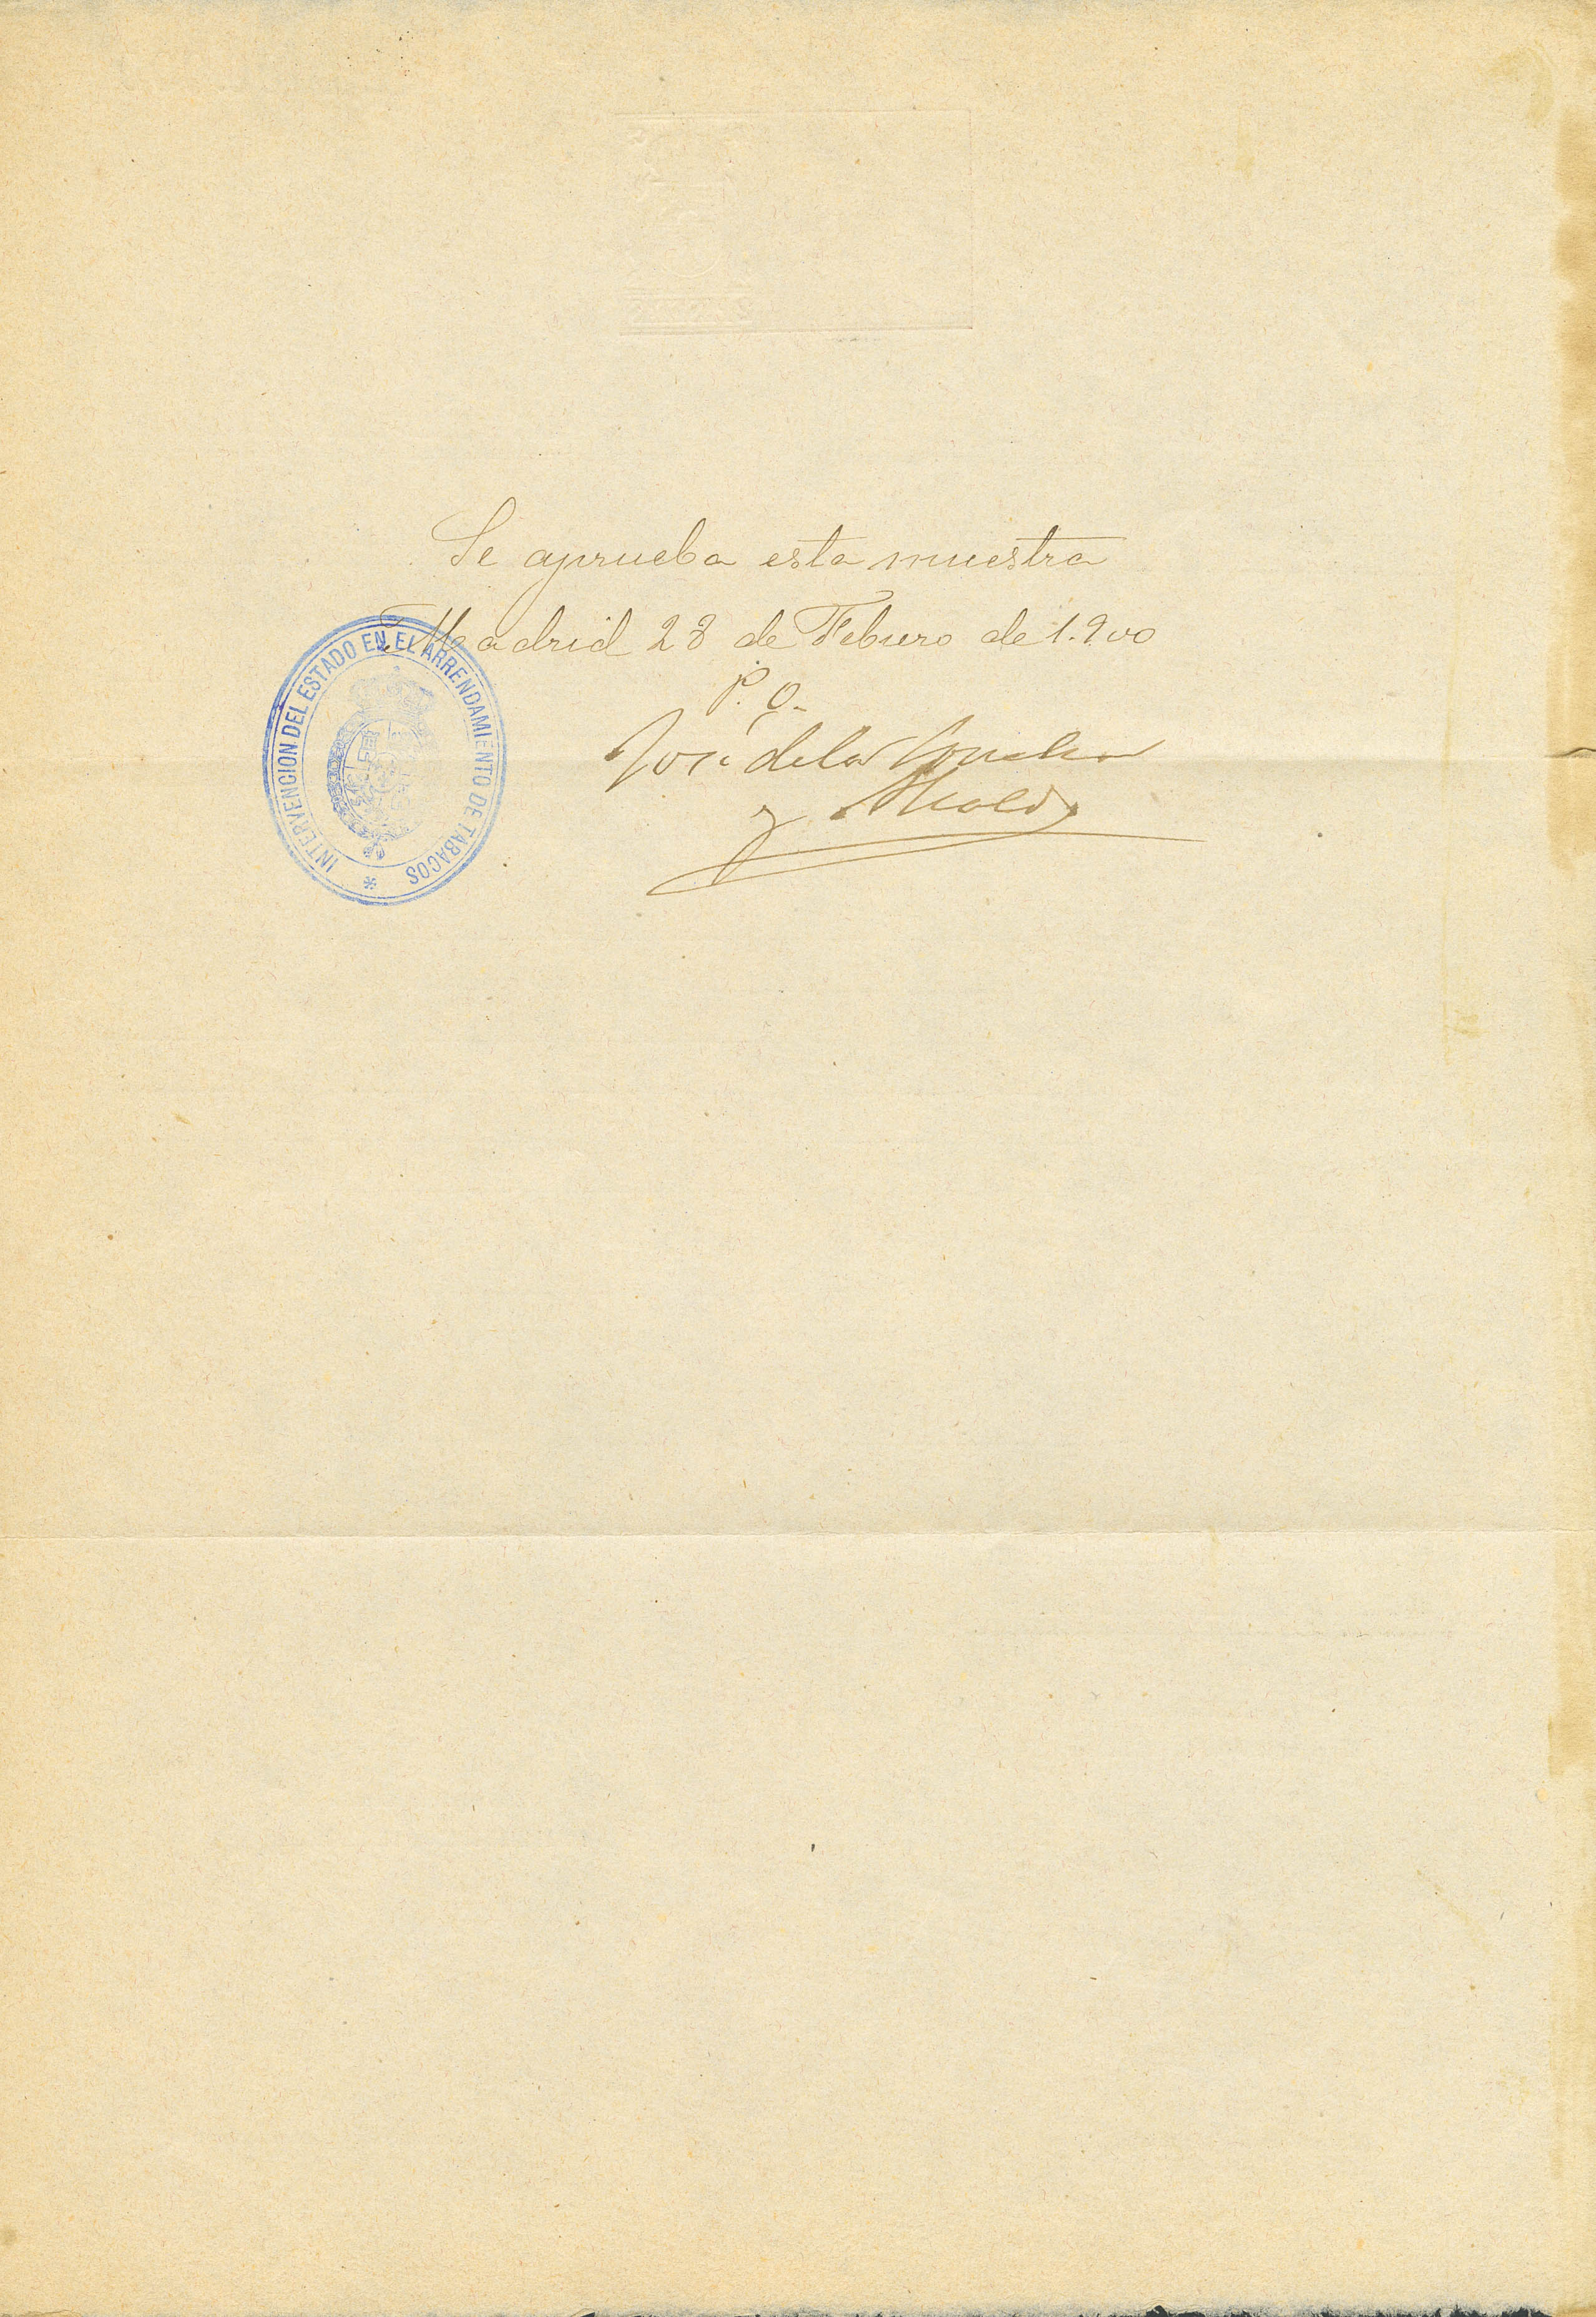 Se aprueba esta muestra
Madrid 28 de Febrero de 1.900
P.O.
José de la Concha
y Alcalde
INTERVENCION DEL ESTADO EN EL ARRENDAMIENTO DE TABACOS *